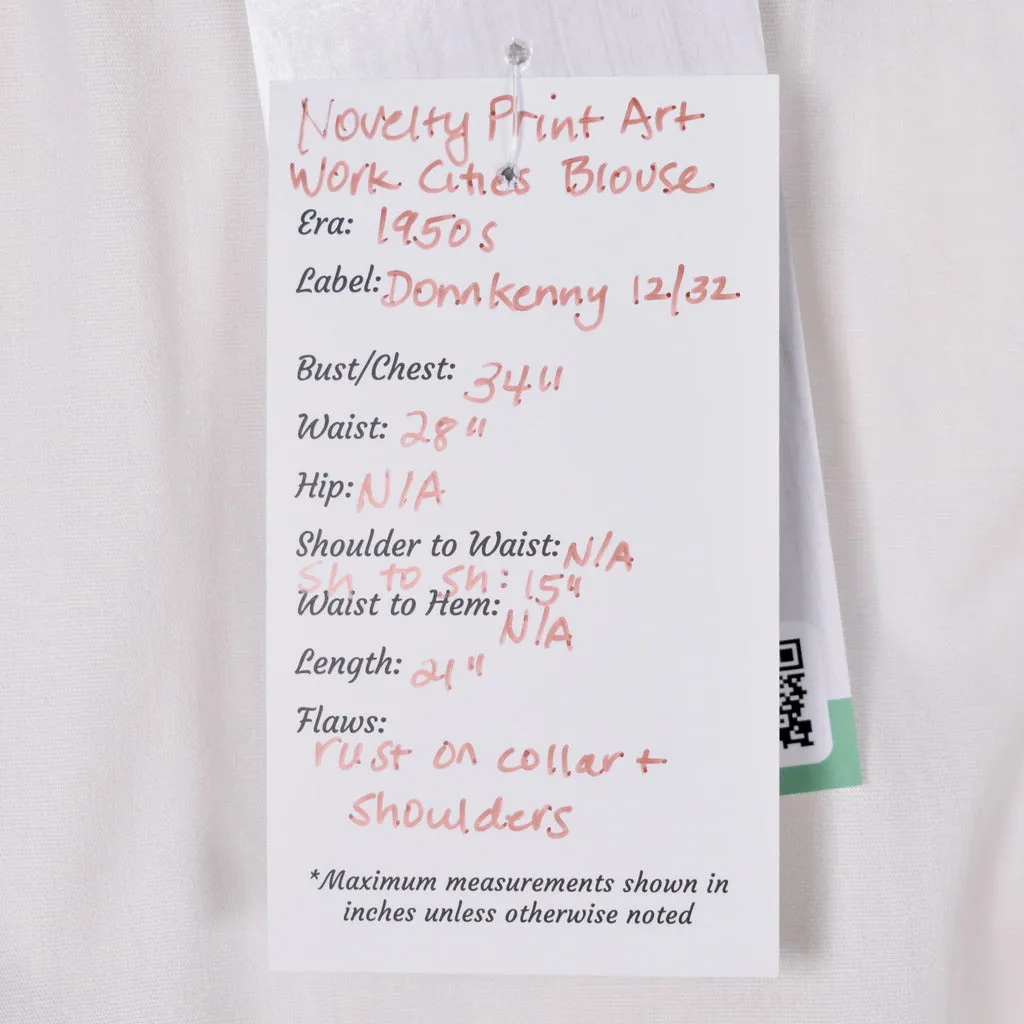 Novelty Print Art
Work Cities Blouse
Era: 1950s
Label: Donnkenny 12/32
Bust/Chest: 34"
Waist: 28"
Hip: N/A
Shoulder to Waist: N/A
Sh to sh: 15"
Waist to Hem: N/A
Length: 21"
Flaws:
rust on collar +
shoulders
*Maximum measurements shown in
inches unless otherwise noted